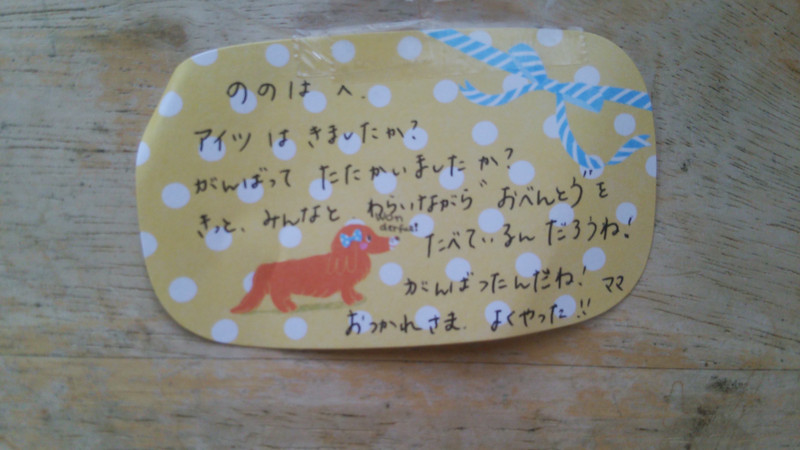 ののはへ.
アイツはきましたか?
がんばって たたかいましたか?
きっと、みんなと わらいながら おべんとうを
won
derful!
たべているんだろうね!
がんばったんだね!
ママ
おつかれさま. よくやった!!